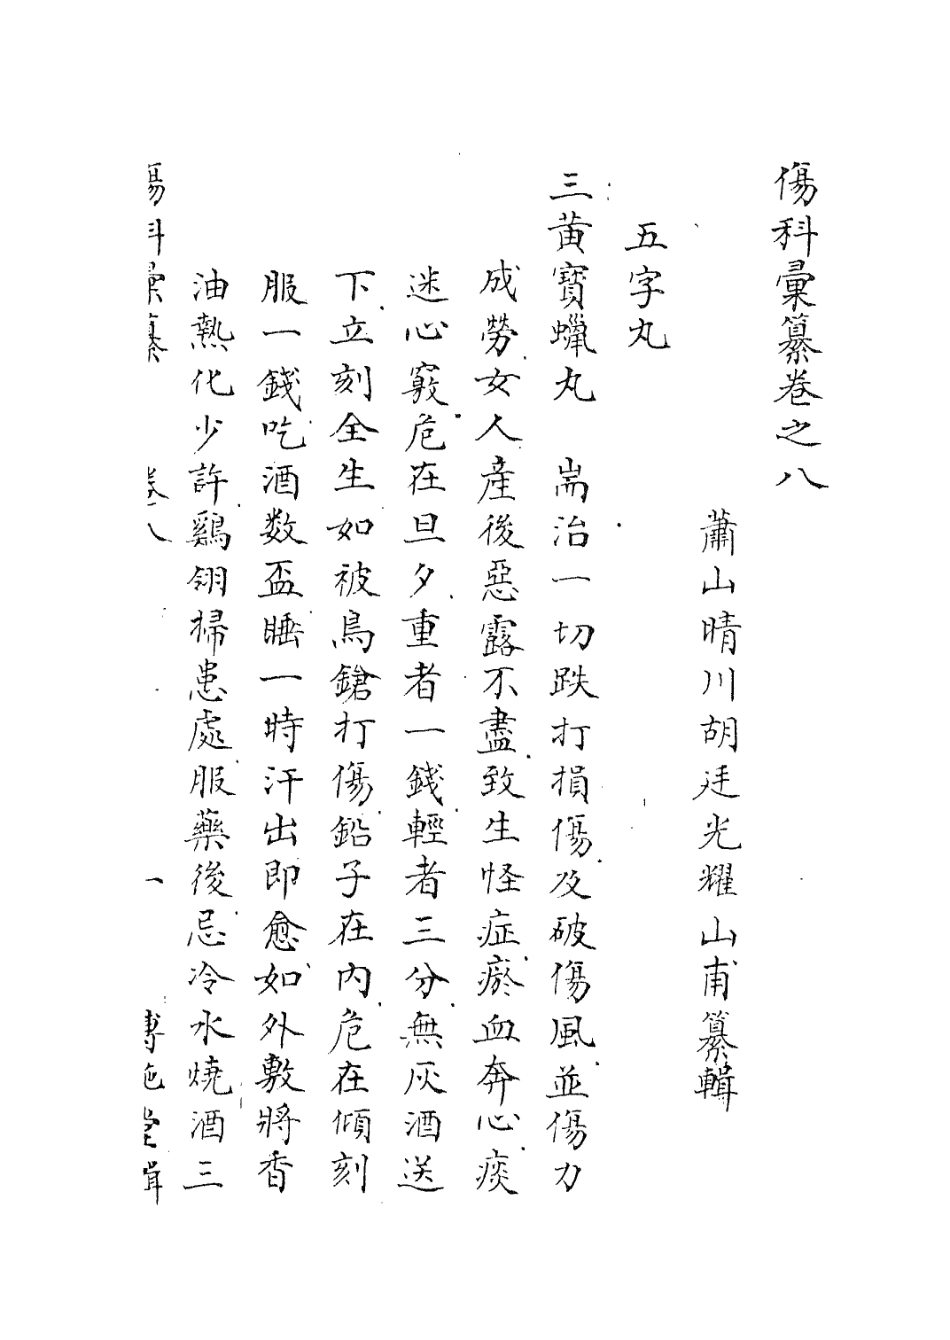 傷科彙纂卷之八
蕭山晴川胡廷光耀山甫纂輯
五字丸
三黄寳蠟丸　耑治一切跌打損傷及破傷風並傷力
成勞女人産後惡露不盡致生怪症瘀血奔心痰
迷心竅危在旦夕重者一錢輕者三分無灰酒送
下立刻全生如被鳥鎗打傷鉛子在内危在傾刻
服一錢吃酒数盃睡一時汗出即愈如外敷將香
油熱化少許鷄翎掃患處服藥後忌冷水燒酒三
傷科彙纂　卷八　一　博施堂輯